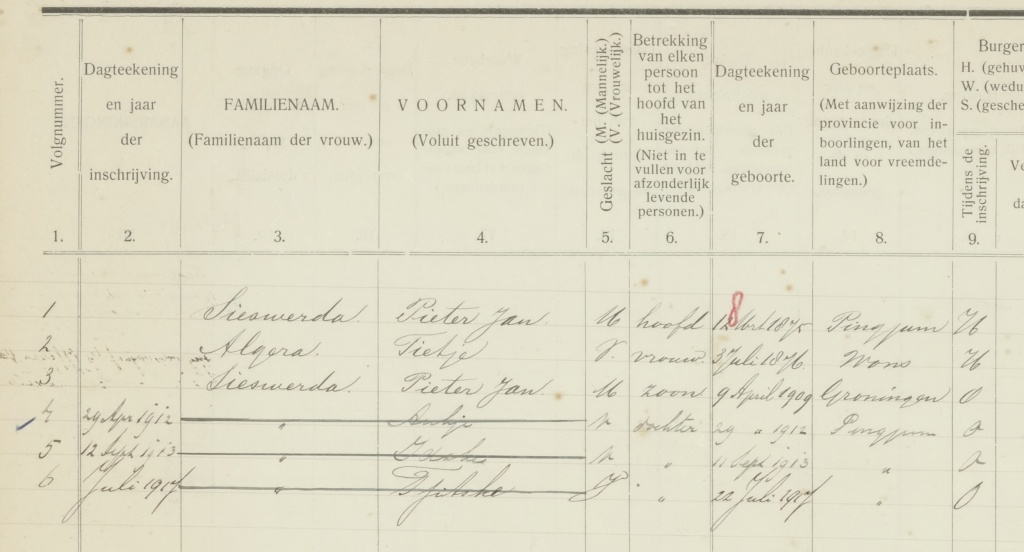 Volgnummer.
Dagteekening
en jaar
der
inschrijving.
FAMILIENAAM.
(Familienaam der vrouw.)
VOORNAMEN.
(Voluit geschreven.)
Geslacht (M. (Mannelijk.)
(V. (Vrouwelijk.)
Betrekking
van elken
persoon
tot het
hoofd van
het
huisgezin.
(Niet in te
vullen voor
afzonderlijk
levende
personen.)
Dagteekening
en jaar
der
geboorte.
Geboorteplaats.
(Met aanwijzing der
provincie voor in-
boorlingen, van het
land voor vreemde-
lingen.)
Burger
H. (gehuw
W. (wedu
S. (gesche
Tijdens de
inschrijving.
Vo
da
1. 2. 3. 4. 5. 6. 7. 8. 9.
1 Sieswerda. Pieter Jan. M hoofd 12 Mrt 1875 8 Pingjum H
2 Algera. Tietje V. vrouw. 3 Juli 1876. Wons H
3 Sieswerda. Pieter Jan. M zoon 9 April 1909 Groningen O
4 29 Apr 1912 " V dochter 29 " 1912 Pingjum O
5 12 Sept 1913 " V " 11 Sept 1913 " O
6 Juli 1917 " Tjitske " 22 Juli 1917 " O